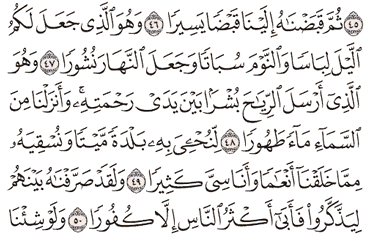 ٤٥ ثُمَّ قَبَضْنَٰهُ إِلَيْنَا قَبْضًا يَسِيرًا ٤٦ وَهُوَ ٱلَّذِى جَعَلَ لَكُمُ
ٱلَّيْلَ لِبَاسًا وَٱلنَّوْمَ سُبَاتًا وَجَعَلَ ٱلنَّهَارَ نُشُورًا ٤٧ وَهُوَ
ٱلَّذِىٓ أَرْسَلَ ٱلرِّيَٰحَ بُشْرًۢا بَيْنَ يَدَىْ رَحْمَتِهِۦ ۚ وَأَنزَلْنَا مِنَ
ٱلسَّمَآءِ مَآءً طَهُورًا ٤٨ لِّنُحْـِۧىَ بِهِۦ بَلْدَةً مَّيْتًا وَنُسْقِيَهُۥ
مِمَّا خَلَقْنَآ أَنْعَٰمًا وَأَنَاسِىَّ كَثِيرًا ٤٩ وَلَقَدْ صَرَّفْنَٰهُ بَيْنَهُمْ
لِيَذَّكَّرُوا۟ فَأَبَىٰٓ أَكْثَرُ ٱلنَّاسِ إِلَّا كُفُورًا ٥٠ وَلَوْ شِئْنَا